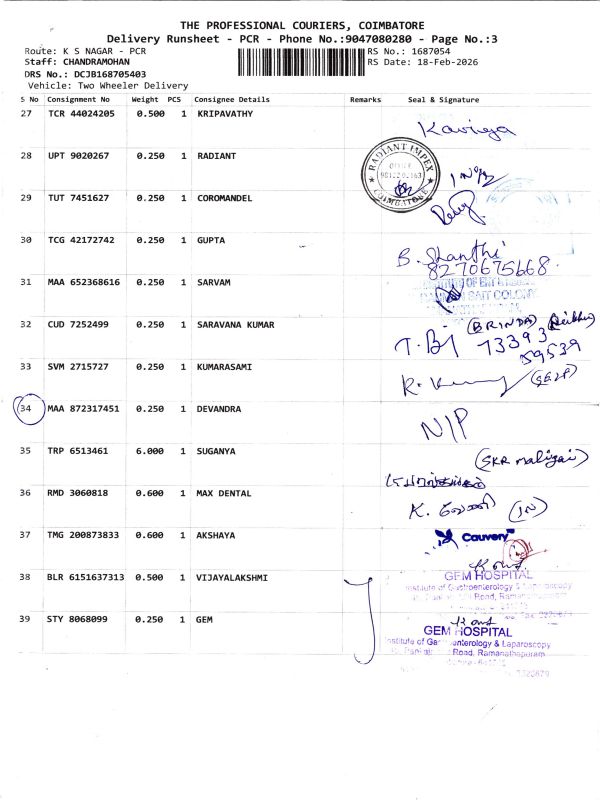 THE PROFESSIONAL COURIERS, COIMBATORE
Delivery Runsheet - PCR - Phone No.:9047080280 - Page No.:3
Route: K S NAGAR - PCR
RS No.: 1687054
Staff: CHANDRAMOHAN
RS Date: 18-Feb-2026
DRS No.: DCJB168705403
Vehicle: Two Wheeler Delivery
S No Consignment No Weight PCS Consignee Details Remarks Seal & Signature
27 TCR 44024205 0.500 1 KRIPAVATHY
28 UPT 9020267 0.250 1 RADIANT
RADIANT IMPEX
OFFICE
COIMBATORE
29 TUT 7451627 0.250 1 COROMANDEL
30 TCG 42172742 0.250 1 GUPTA
B. Shanthi
8270675668
31 MAA 652368616 0.250 1 SARVAM
32 CUD 7252499 0.250 1 SARAVANA KUMAR
(BRINDA)
73393
59539
33 SVM 2715727 0.250 1 KUMARASAMI
(SELF)
34 MAA 872317451 0.250 1 DEVANDRA
N/P
35 TRP 6513461 6.000 1 SUGANYA
(SKR maligai)
36 RMD 3060818 0.600 1 MAX DENTAL
K.
37 TMG 200873833 0.600 1 AKSHAYA
Cauvery
38 BLR 6151637313 0.500 1 VIJAYALAKSHMI
GEM HOSPITAL
Institute of Gastroenterology & Laparoscopy
Road, Ramanathapuram
39 STY 8068099 0.250 1 GEM
GEM HOSPITAL
Institute of Gastroenterology & Laparoscopy
Road, Ramanathapuram